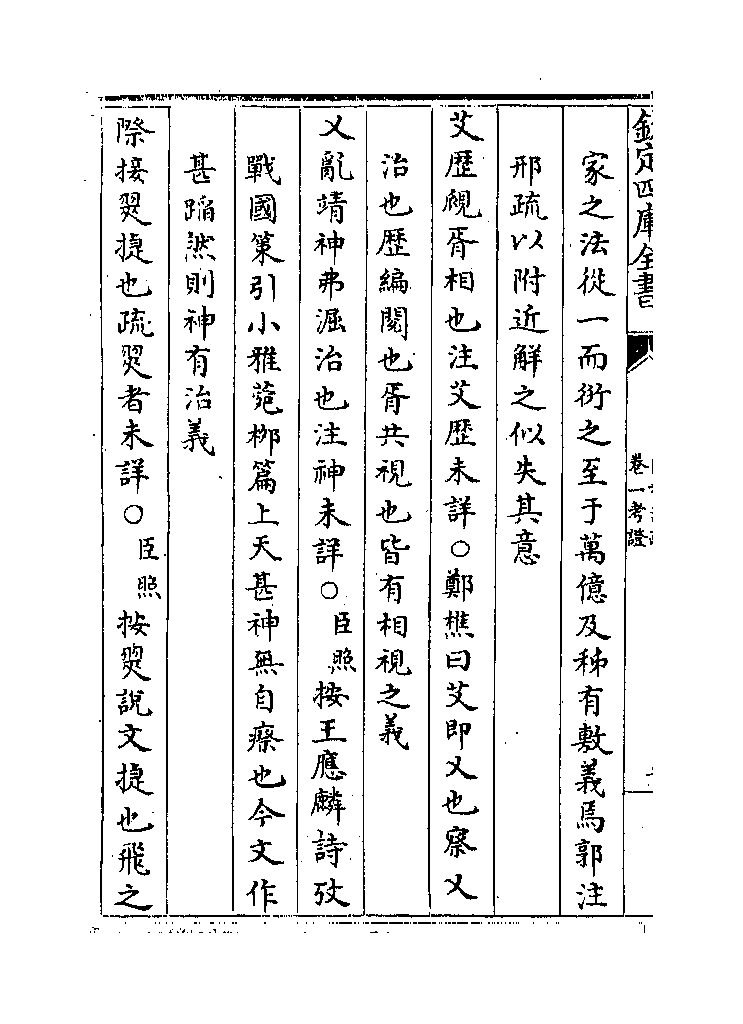 欽定四庫全書
卷一考證
家之法從一而衍之至于萬億及秭有敷義焉郭注
邢疏以附近解之似失其意
艾歷覛胥相也注艾歷未詳○鄭樵曰艾即乂也察乂
治也歷編閱也胥共視也皆有相視之義
乂亂靖神弗淈治也注神未詳○臣照按王應麟詩攷
戰國策引小雅菀柳篇上天甚神無自瘵也今文作
甚蹈然則神有治義
際接翜捷也疏翜者未詳○臣照按翜說文捷也飛之